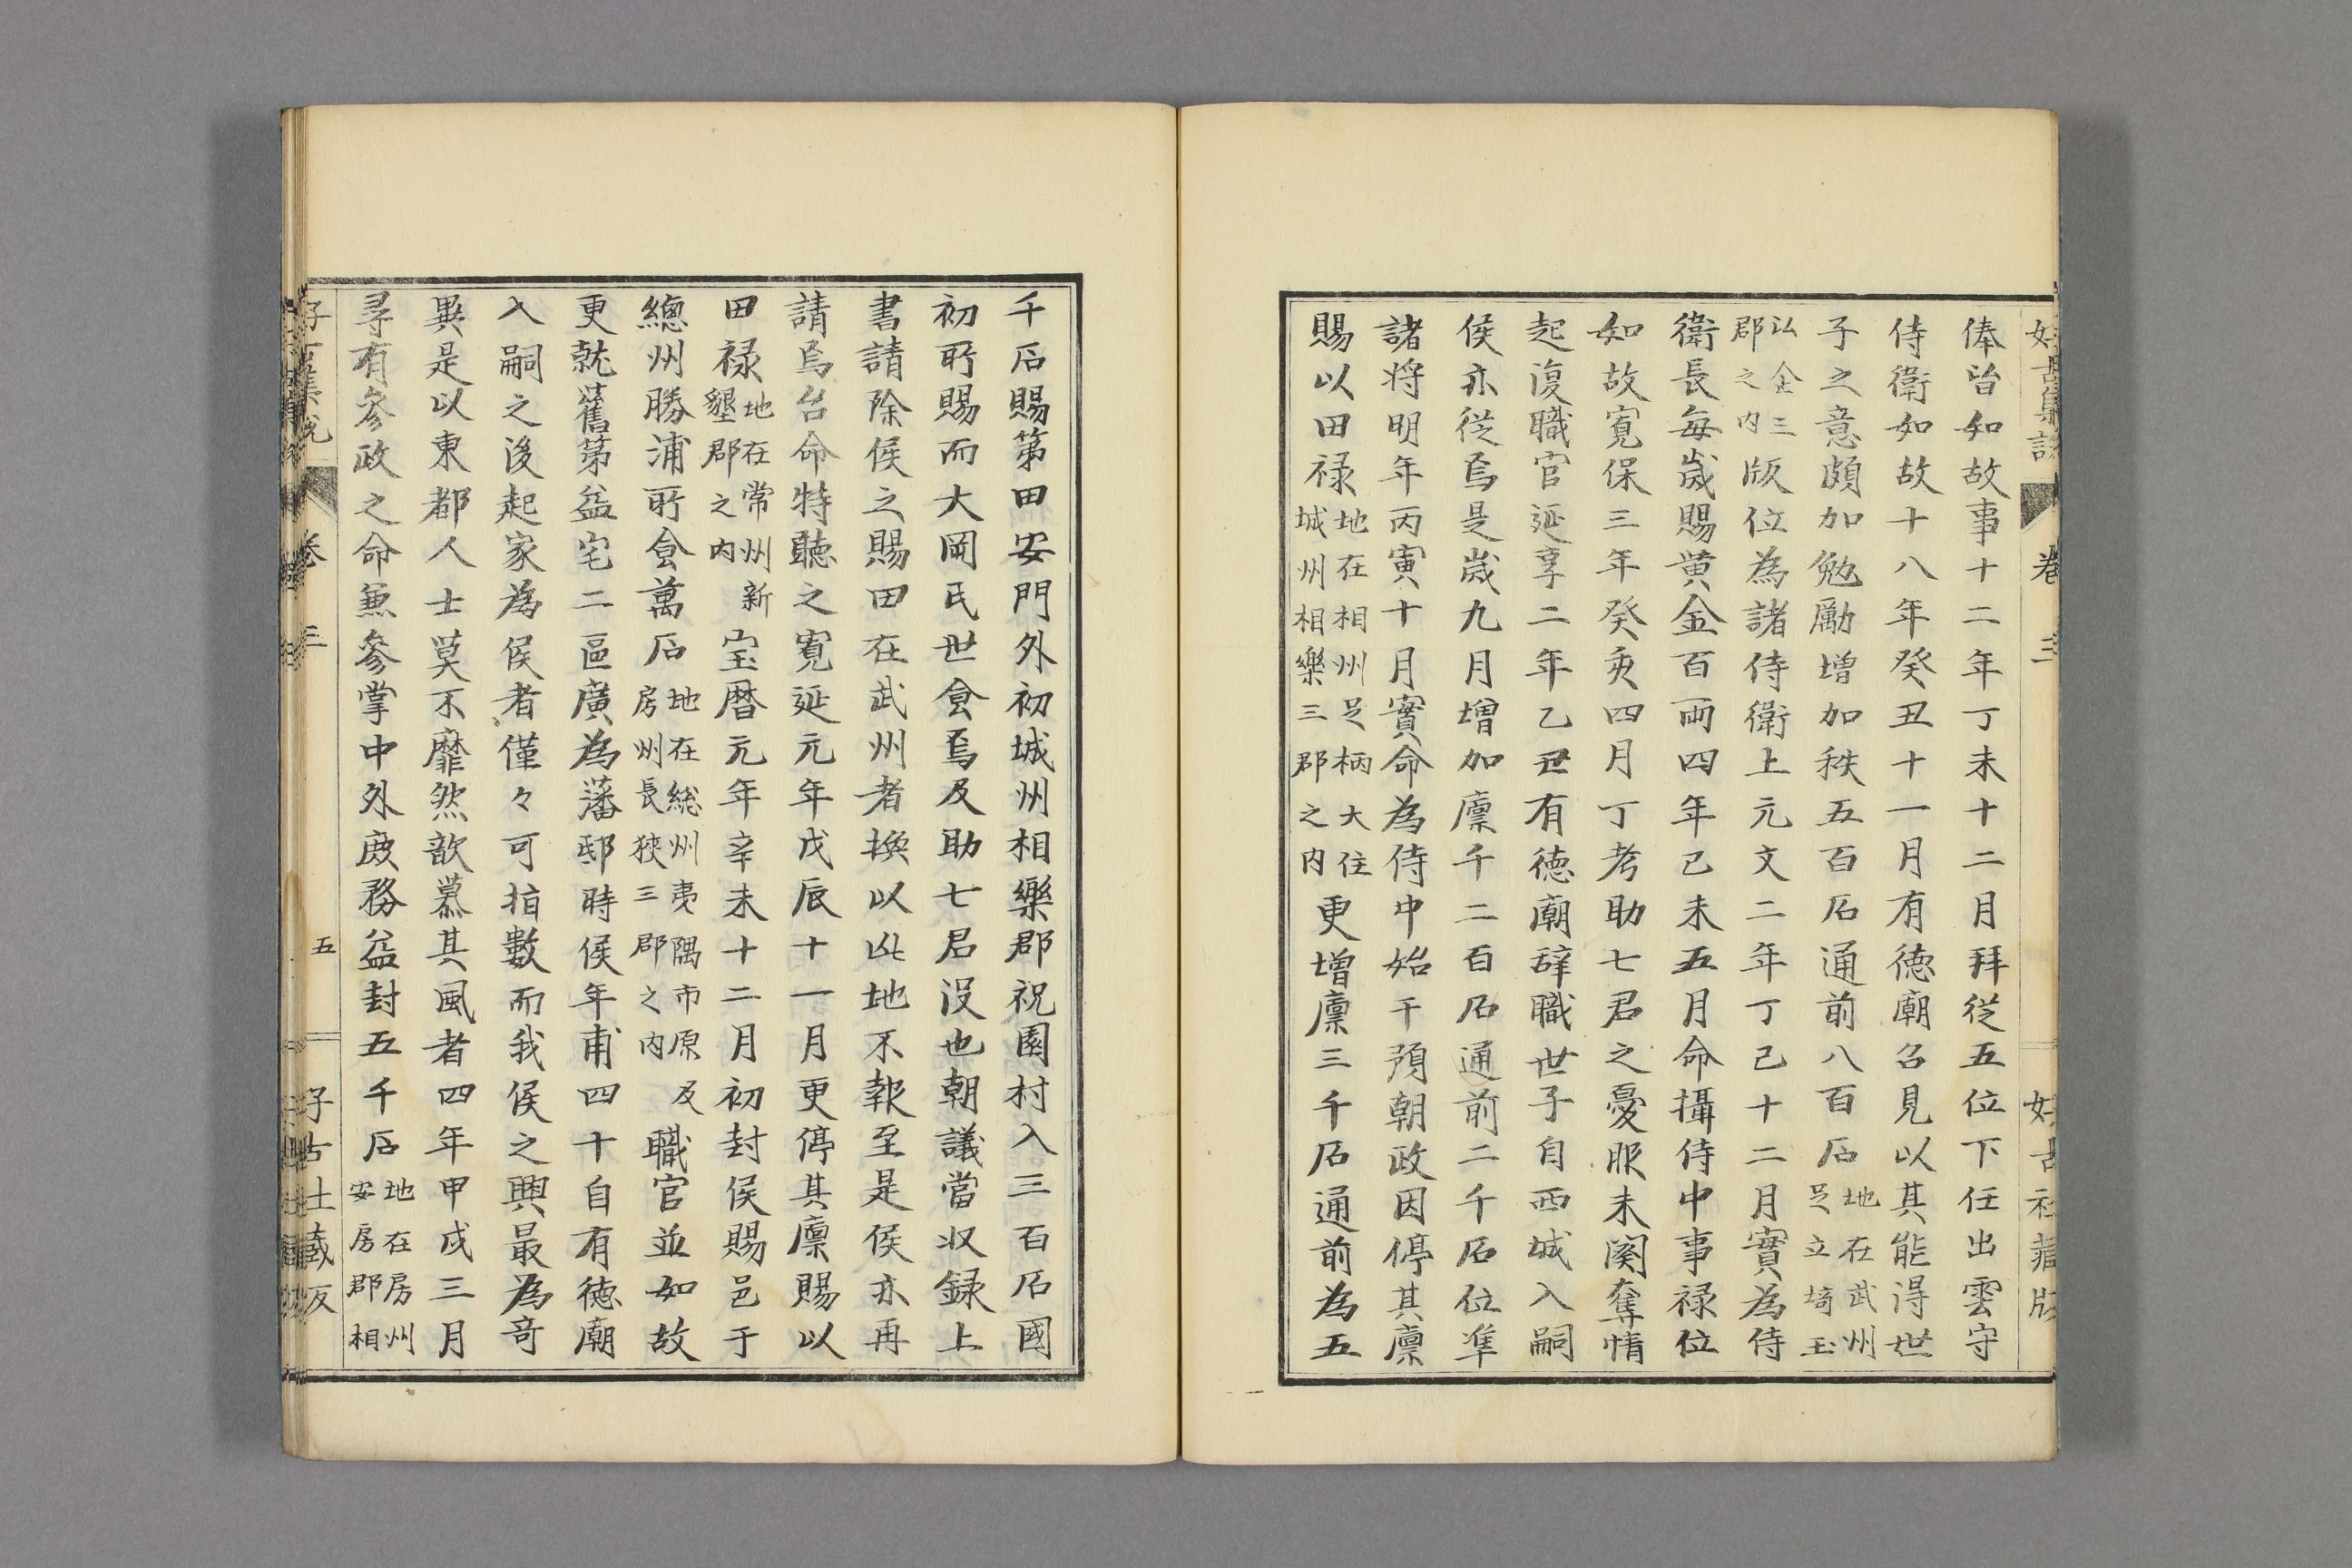 俸皆如故事十二年丁未十二月拜從五位下任出雲守
侍衛如故十八年癸丑十一月有徳廟召見以其能得世
子之意頗加勉勵増加秩五百石通前八百石地在武州足立埼玉
以企三郡之内版位為諸侍衛上元文二年丁己十二月實為侍
衛長每歳賜黄金百兩四年己未五月命攝侍中事禄位
如故寛保三年癸亥四月丁考助七君之憂服未闋奪情
起復職官延享二年乙丑有徳廟辞職世子自西城入嗣
侯亦従焉是歳九月増加廩千二百石通前二千石位準
諸将明年丙寅十月實命為侍中始干預朝政因停其廩
賜以田禄地在相州足柄大住城州相樂三郡之内更増廩三千石通前為五
千石賜第田安門外初城州相樂郡祝園村入三百石國
初所賜而大岡氏世食焉及助七君没也朝議當収録上
書請除侯之賜田在武州者換以此地不報至是侯亦再
請焉台命特聽之寛延元年戊辰十一月更停其廩賜以
田禄地在常州新墾郡之内宝暦元年辛未十二月初封侯賜邑于
總州勝浦所食萬石地在総州夷隅市原及房州長狹三郡之内職官並如故
更就舊第益宅二區廣為藩邸時侯年甫四十自有徳廟
入嗣之後起家為侯者僅々可指數而我侯之興最為奇
異是以東都人士莫不靡然歆慕其風者四年甲戌三月
尋有参政之命兼參掌中外庶務益封五千石地在房州安房郡相
卷三
五
好古社蔵版